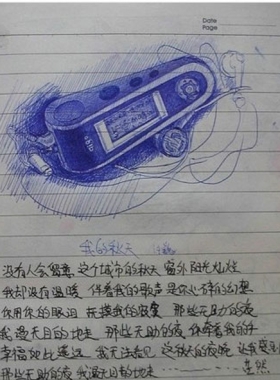 Date
Page
我的秋天 许巍
没有人会留意 这个城市的秋天 窗外阳光灿烂
我却没有温暖 伴着我的歌声 是你心碎的幻想
你用你的眼泪 抚摸我的寂寞 那些无助的夜
我漫无目的地走 那些无助的夜 伴着我的
幸福如此遥远 我无法看见 这秋天的夜晚 让我感到
那些无助的夜 我漫无目的地走